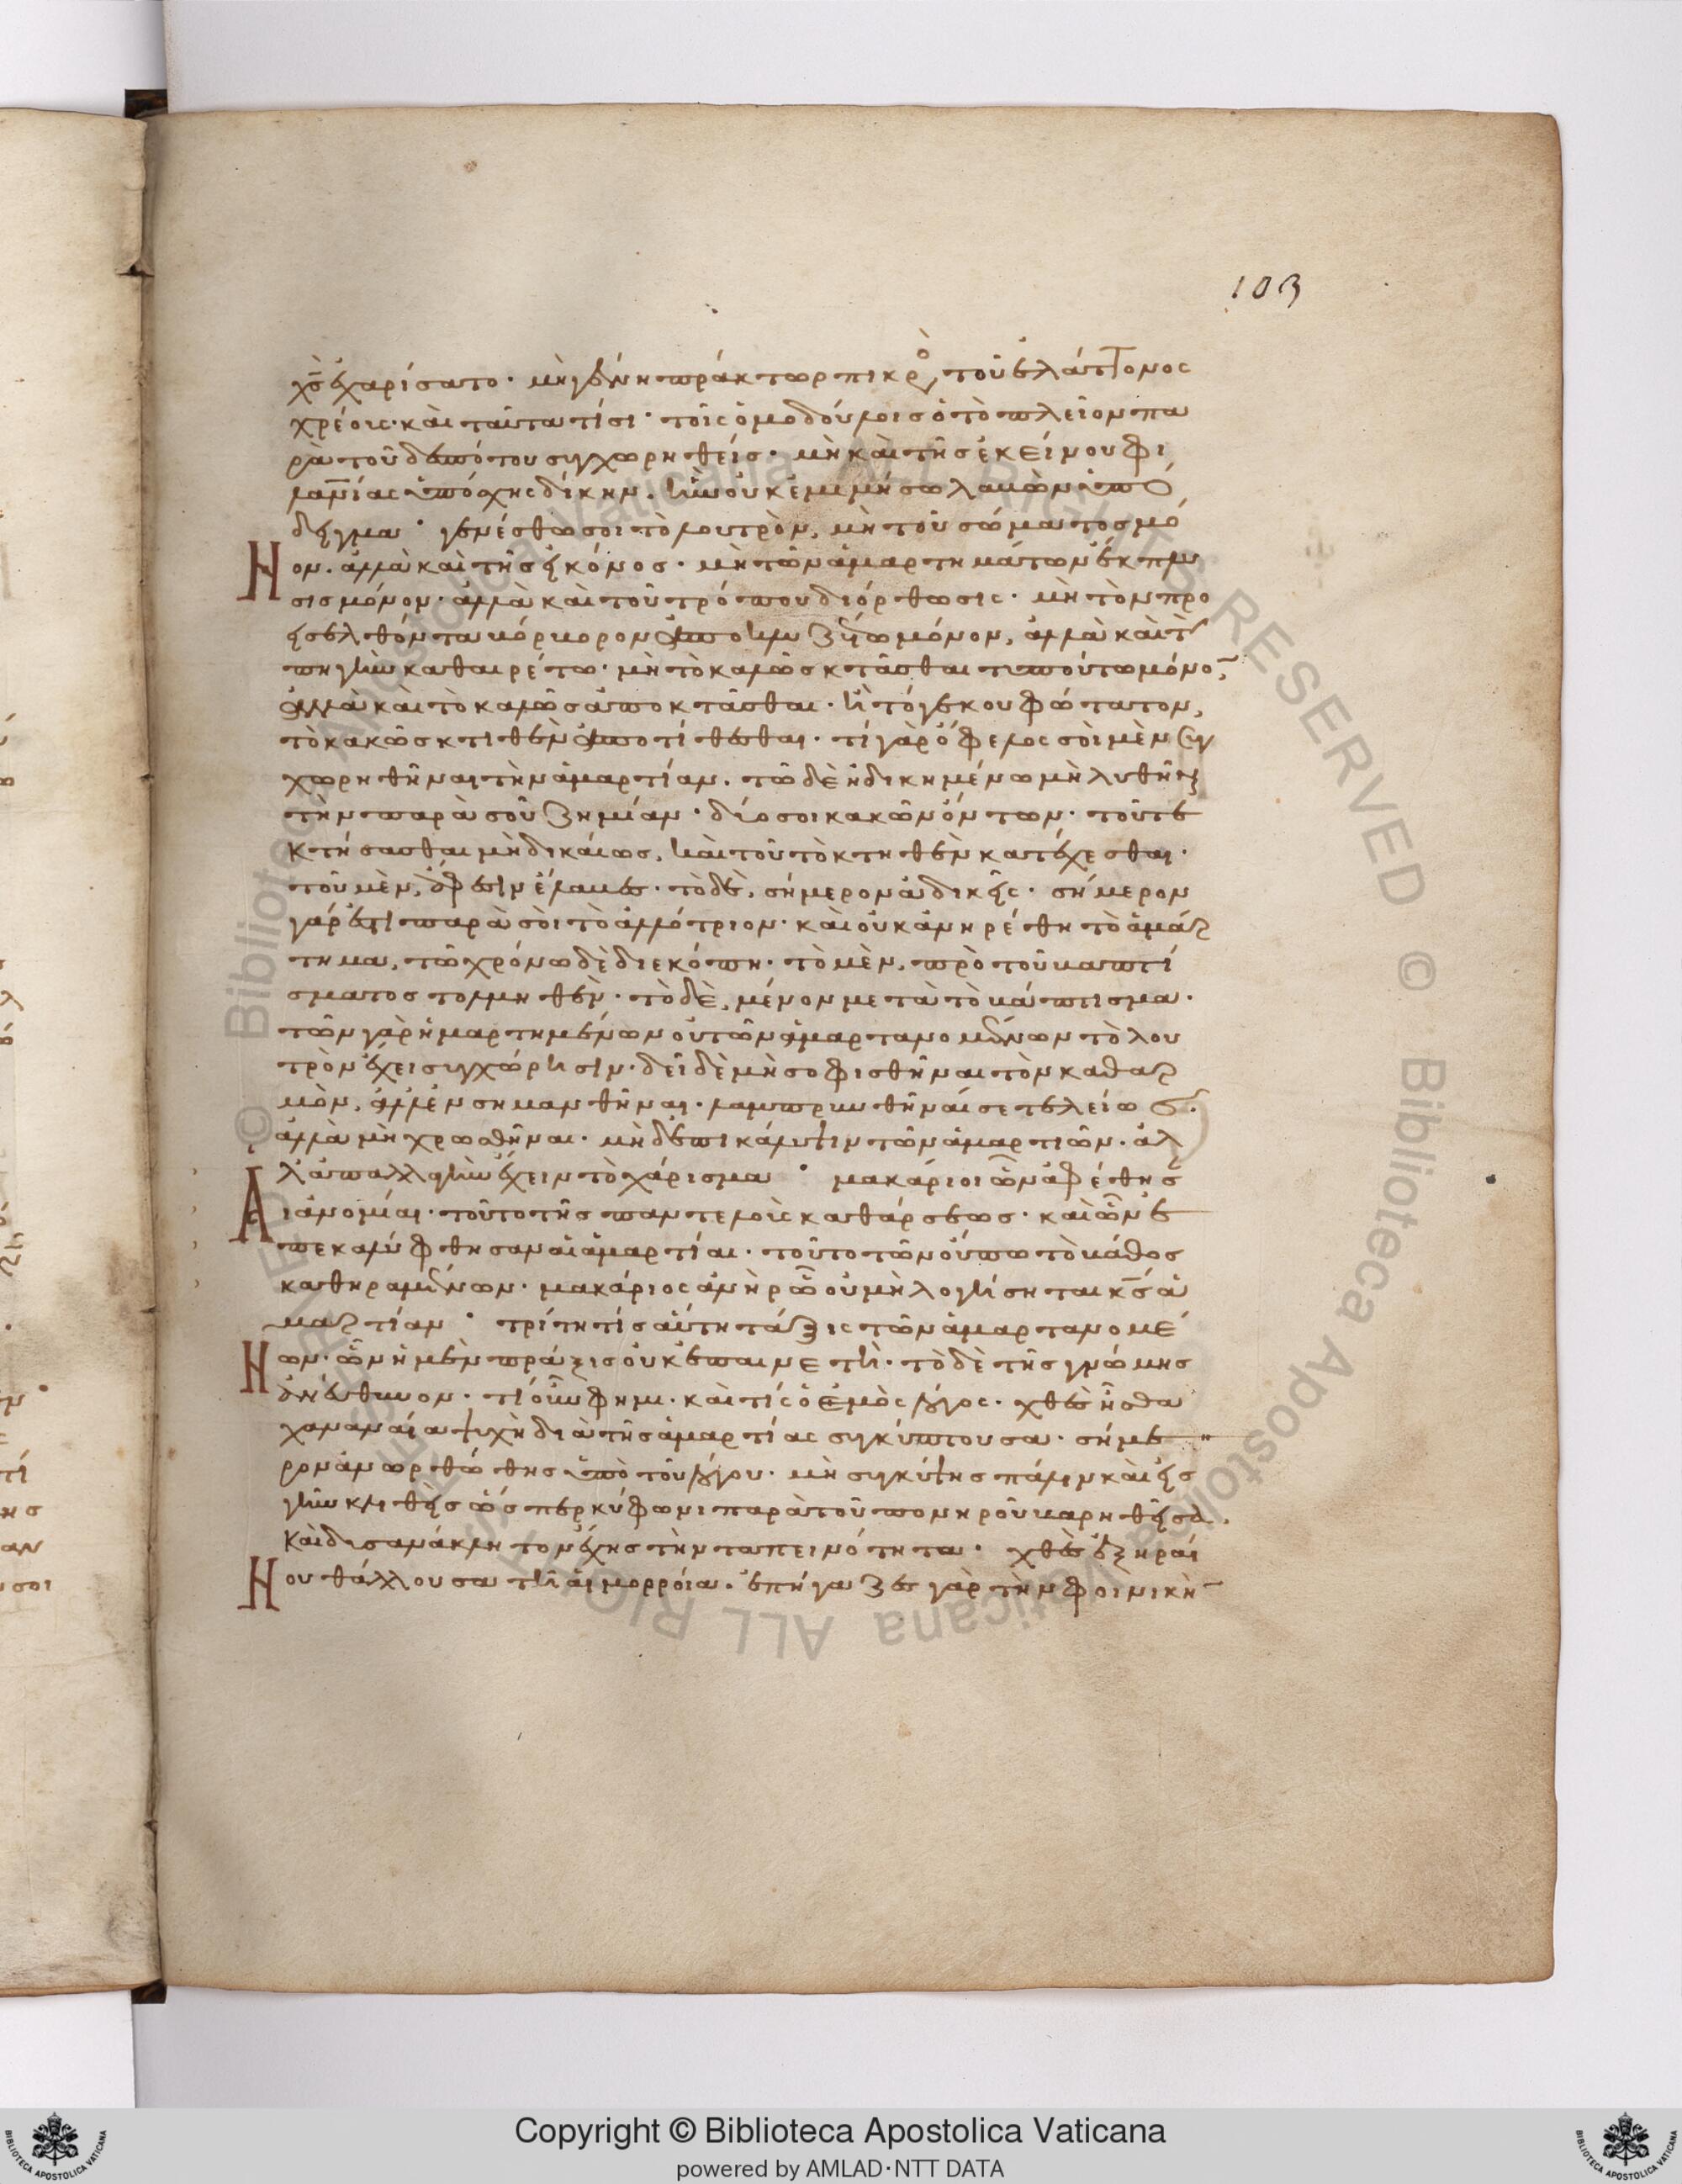 χς ἐχαρίσατο· μὴ γένη πράκτωρ πικρὸς τοῦ ἐλάττονος
χρέους· καὶ ταῦτα τίσι· τοῖς ὁμοδούλοις ὁ τὸ πλεῖον πα
ρὰ τοῦ δεσπότου συγχωρηθείς· μὴ καὶ τῆς ἐκείνου φι
λανίας ὑπόσχης δίκην. ἣν οὐκ ἐμιμήσω λαβὼν ὑπό
δειγμα· γενέσθω σοι τὸ λουτρὸν, μὴ τοῦ σώματος μό
νον. ἀλλὰ καὶ τῆς εἰκόνος· μὴ τῶν ἁμαρτημάτων ἔκπλυ
σις μόνον· ἀλλὰ καὶ τοῦ τρόπου διόρθωσις· μὴ τὸν προ
εισελθόντα βόρβορον ἀποκλυζέτω μόνον, ἀλλὰ καὶ τὴν
πηγὴν καθαιρέτω· μὴ τὸ καλῶς κτᾶσθαι τυπούτω μόνον,
ἀλλὰ καὶ τὸ καλῶς ἀποκτᾶσθαι· ἢ τό γε κουφώτατον,
τὸ κακῶς κτιθὲν ἀποτίθεσθαι· τί γὰρ ὄφελος σοὶ μὲν συγ
χωρηθῆναι τὴν ἁμαρτίαν. τῶ δὲ ἠδικημένω μὴ λυθῆναι
τὴν παρὰ σοῦ ζημίαν· δύο σοι κακῶν ὄντων· τοῦ τε
κτήσασθαι μὴ δικαίως, καὶ τοῦ τὸ κτηθὲν κατέχεσθαι·
τοῦ μὲν, ἄφεσιν ἔλαβες· τὸ δὲ, σήμερον ἀδικεῖς· σήμερον
γάρ ἐστι παρὰ σοὶ τὸ ἀλλότριον· καὶ οὐκ ἀνηρέθη τὸ ἁμάρ
τημα, τῶ χρόνω δὲ διεκόπη· τὸ μὲν, πρὸ τοῦ βαπτί
σματος τολμηθὲν· τὸ δὲ, μένον μετὰ τὸ βάπτισμα·
τῶν γὰρ ἡμαρτημένων οὐ τῶν ἁμαρτανομένων τὸ λου
τρὸν ἔχει συγχώρησιν· δεῖ δὲ μὴ σοφισθῆναι τὸν καθαρ
μὸν, ἀλλ' ἐνσημανθῆναι· λαμπρυνθῆναί σε τελείως·
ἀλλὰ μὴ χρωσθῆναι· μὴ δ' ἐπικάλυψιν τῶν ἁμαρτιῶν· ἀλ
λ' ἀπαλλαγὴν ἔχειν τὸ χάρισμα· μακάριοι ὧν ἀφέθησ
Αι ἀνομίαι· τοῦτο τῆς παντελοῦς καθάρσεως· καὶ ὧν ἐ
πεκαλύφθησαν αἱ ἁμαρτίαι· τοῦτο τῶν οὔπω τὸ βάθος
καθηραμένων· μακάριος ἀνὴρ ὧ οὐ μὴ λογίσηται κς ἁ
μαρτίαν· τρίτη τίς αὕτη τάξις τῶν ἁμαρτανομέ
Νων· ὧν ἡ μὲν πρᾶξις οὐκ ἐπαινετὴ· τὸ δὲ τῆς γνώμης
ἀνεύθυνον· τί οὖν φημι· καὶ τίς ὁ ἐμὸς λόγος· χθὲς ἦσθα
χαναναία ψυχὴ διὰ τῆς ἁμαρτίας συγκύπτουσα· σήμε
ρον ἀνωρθώθης ὑπὸ τοῦ λόγου· μὴ συγκύψης πάλιν καὶ εἰς
γῆν κλιθῆς ὥσπερ κύφωνι παρὰ τοῦ πονηροῦ βαρηθεῖσα.
Καὶ δυσανάκλητον ἔχης τὴν ταπεινότητα· χθὲς ἐξηραί
Νου θάλλουσα τῆ αἱμορροία· ἐπήγαζες γὰρ τὴν φοινικὴν
103